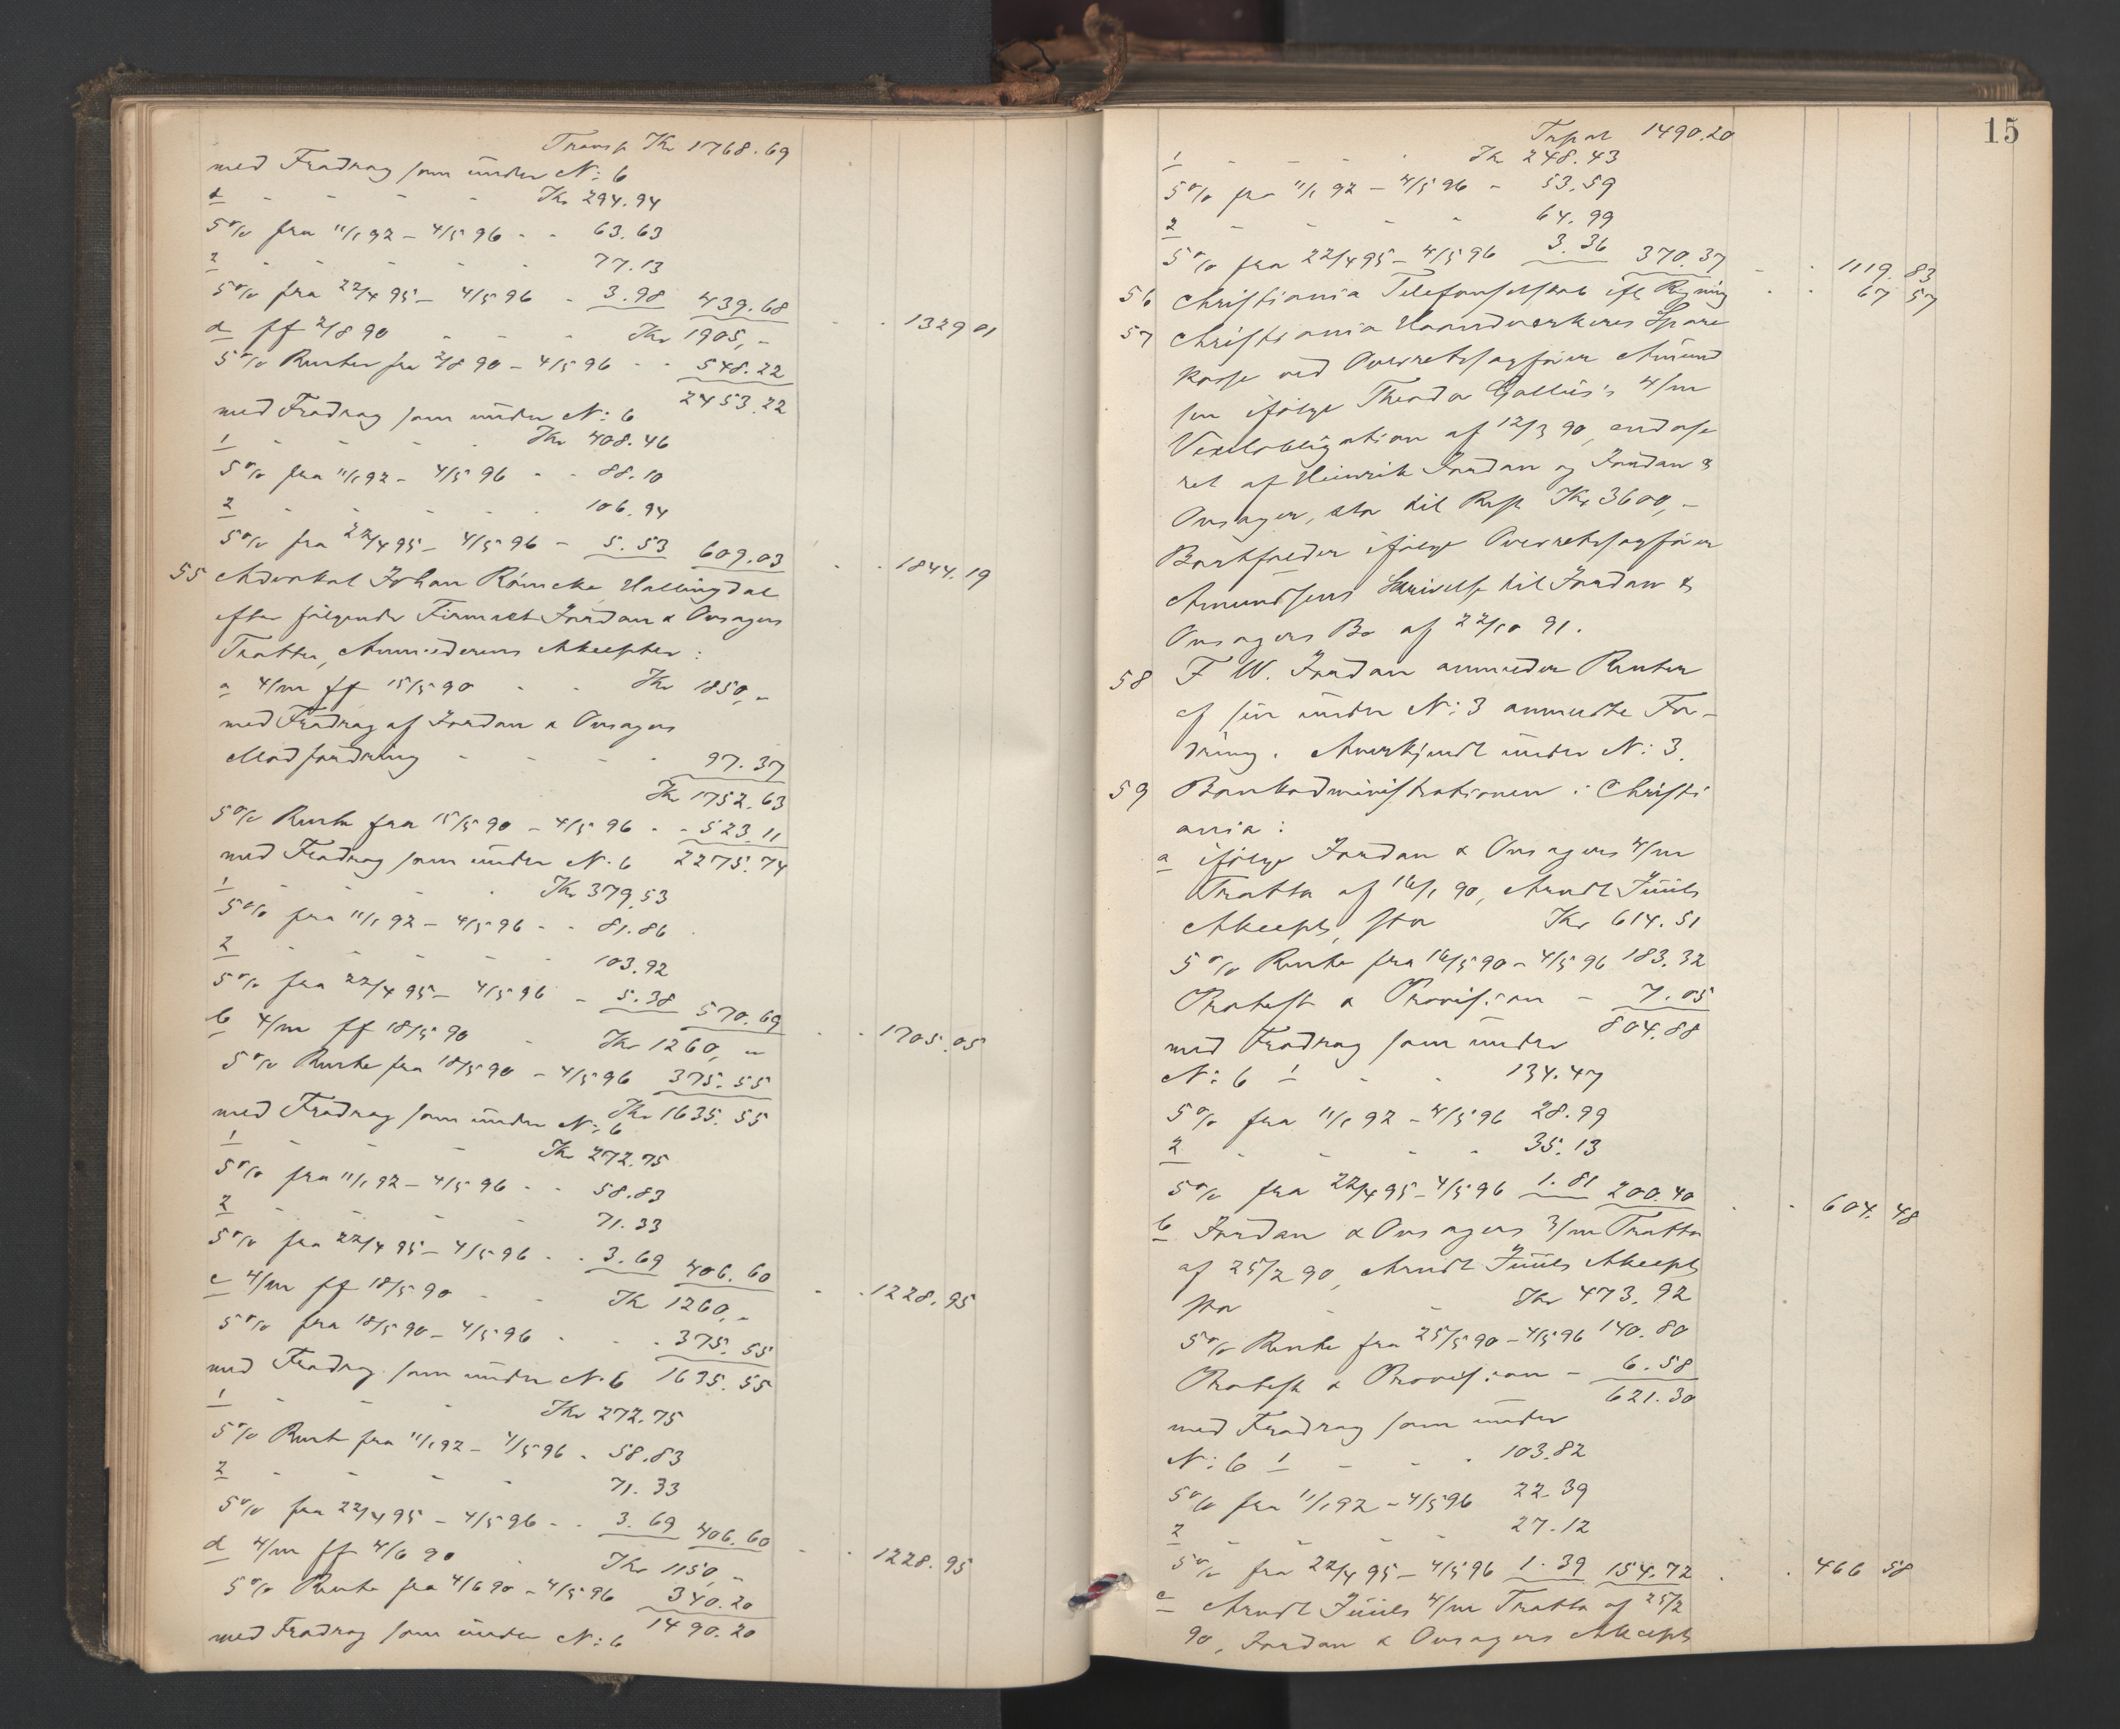 Transp Kr 1768.69
med Fradrag som under N: 6
1 - - - - Kr 294.94
5% fra 11/1 92 - 4/5 96 - - 63.63
2 - - - - - 77.13
5% fra 22/4 95 - 4/5 96 - 3.98 439.68 - - 1329 01
d ff 2/8 90 - - - Kr 1905,-
5% Renter fra 2/8 90 - 4/5 96 - - 548.22
2453.22
med Fradrag som under N: 6
1 - - - - Kr 408.46
5% fra 11/1 92 - 4/5 96 - - 88.10
2 - - - - - 106.94
5% fra 22/4 95 - 4/5 96 - 5.53 609.03 - - 1844.19
55 Advokat Johan Hallingdal
efter følgende Firmaet Jordan & Onsagers
Tratter, Akcepter:
a 4/m ff 15/5 90 - - Kr 1850,-
med Fradrag af Jordan & Onsagers
Modfordring - - - - 97.37
Kr 1752.63
5% Rente fra 15/5 90 - 4/5 96 - - 523.11
med Fradrag som under N. 6 2275.74
1 - - - - Kr 379.53
5% fra 11/1 92 - 4/5 96 - - 81.86
2 - - - - - 103.92
5% fra 22/4 95 - 4/5 96 - 5.38 570.69 - - 1705.05
b 4/m ff 18/5 90 - Kr 1260,-
5% Rente fra 18/5 90 - 4/5 96 375.55
Kr 1635.55
med Fradrag som under N: 6
1 - - - Kr 272.75
5% fra 11/1 92 - 4/5 96 - - 58.83
2 - - - - 71.33
5% fra 22/4 95 - 4/5 96 - - 3.69 406.60 - - 1228.95
c 4/m ff 18/5 90 - - Kr 1260,-
5% fra 18/5 90 - 4/5 96 - - - 375.55
med Fradrag som under N. 6 1635.55
1 - - - Kr 272.75
5% Rente fra 11/1 92 - 4/5 96 - 58.83
2 - - - - 71.33
5% fra 22/4 95 - 4/5 96 - - 3.69 406.60 - - 1228.95
d 4/m ff 4/6 90 - Kr 1150,-
5% Rente fra 4/6 90 - 4/5 96 340.20
1490.20
med Fradrag som under N: 6
15
1490.20
1 - - - - Kr 248.43
5% fra 11/1 92 - 4/5 96 - 53.59
2 - - - - 64.99
5% fra 22/4 95 - 4/5 96 3.36 370.37 - - 1119.83
56 Christiania Telefonselskab ifl Regning - - 67 57
57 Christiania Haandværkeres Spare
kasse ved Overretssagfører Amund
sen ifølge Theodor Gallus's 4/m
Vexelobligation af 12/3 90, endosse
ret af Heinrik Jordan og Jordan &
Onsager, stor til Rest Kr 3600,-
Bortfalder ifølge Overretssagfører
Amundsens Skrivelse til Jordan &
Onsagers Bo af 22/10 91.
58 F W. Jordan anmelder Renter
af sin under N: 3 anmeldte For-
dring. Anerkjendt under N: 3.
59 Bankadministrationen i Christi
ania:
a ifølge Jordan & Onsagers 4/m
Tratta af 16/1 90, Arndt Juuls
Akcept, stor Kr 614.51
5% Rente fra 16/5 90 - 4/5 96 183.32
Protest & Provision - 7.05
804.88
med Fradrag som under
N: 6 1 - - 134.47
5% fra 11/1 92 - 4/5 96 28.99
2 - - - - 35.13
5% fra 22/4 95 - 4/5 96 1.81 200.40 - - 604.48
b Jordan & Onsagers 3/m Tratta
af 25/2 90, Arndt Juuls Akcept
stor - - Kr 473.92
5% Rente fra 25/5 90 - 4/5 96 140.80
Protest & Provision - 6.58
621.30
med Fradrag som under
N: 6 1 - - - 103.82
5% fra 11/1 92 - 4/5 96 22.39
2 - - - - 27.12
5% fra 22/4 95 - 4/5 96 1.39 154.72 - - 466 58
c Arndt Juuls 4/m Tratta af 25/2
90, Jordan & Onsagers Akcept